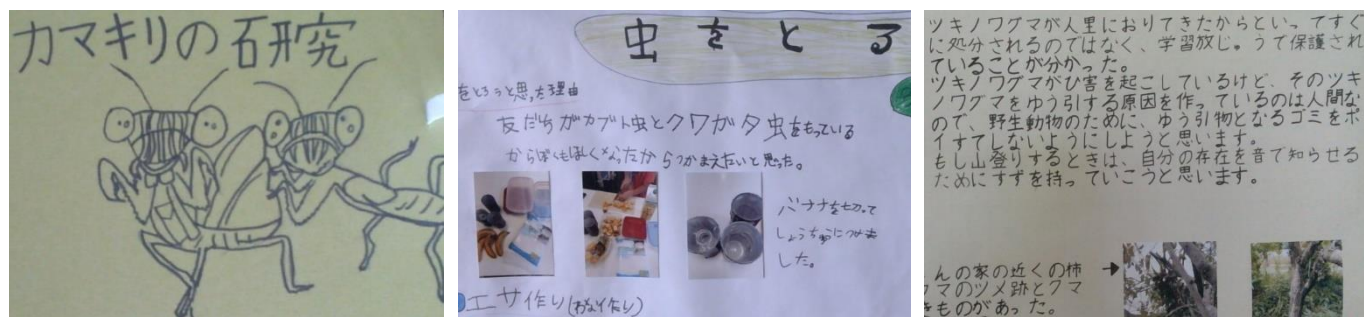 カマキリの研究
虫をとる
をとろうと思った理由
友だちがカブト虫とクワガタ虫をもっている
からぼくもほしくなったからつかまえたいと思った。
バナナを切って
しょうちゅうにつけま
した。
エサ作り(わな作り)
ツキノワグマが人里におりてきたからといってすぐ
に処分されるのではなく、学習放じゅうで保護され
ていることが分かった。
ツキノワグマがひ害を起こしているけど、そのツキ
ノワグマをゆう引する原因を作っているのは人間な
ので、野生動物のために、ゆう引物となるゴミをポ
イすてしないようにしようと思います。
もし山登りするときは、自分の存在を音で知らせる
ためにすずを持っていこうと思います。
んの家の近くの柿
クマのツメ跡とクマ
きものがあった。